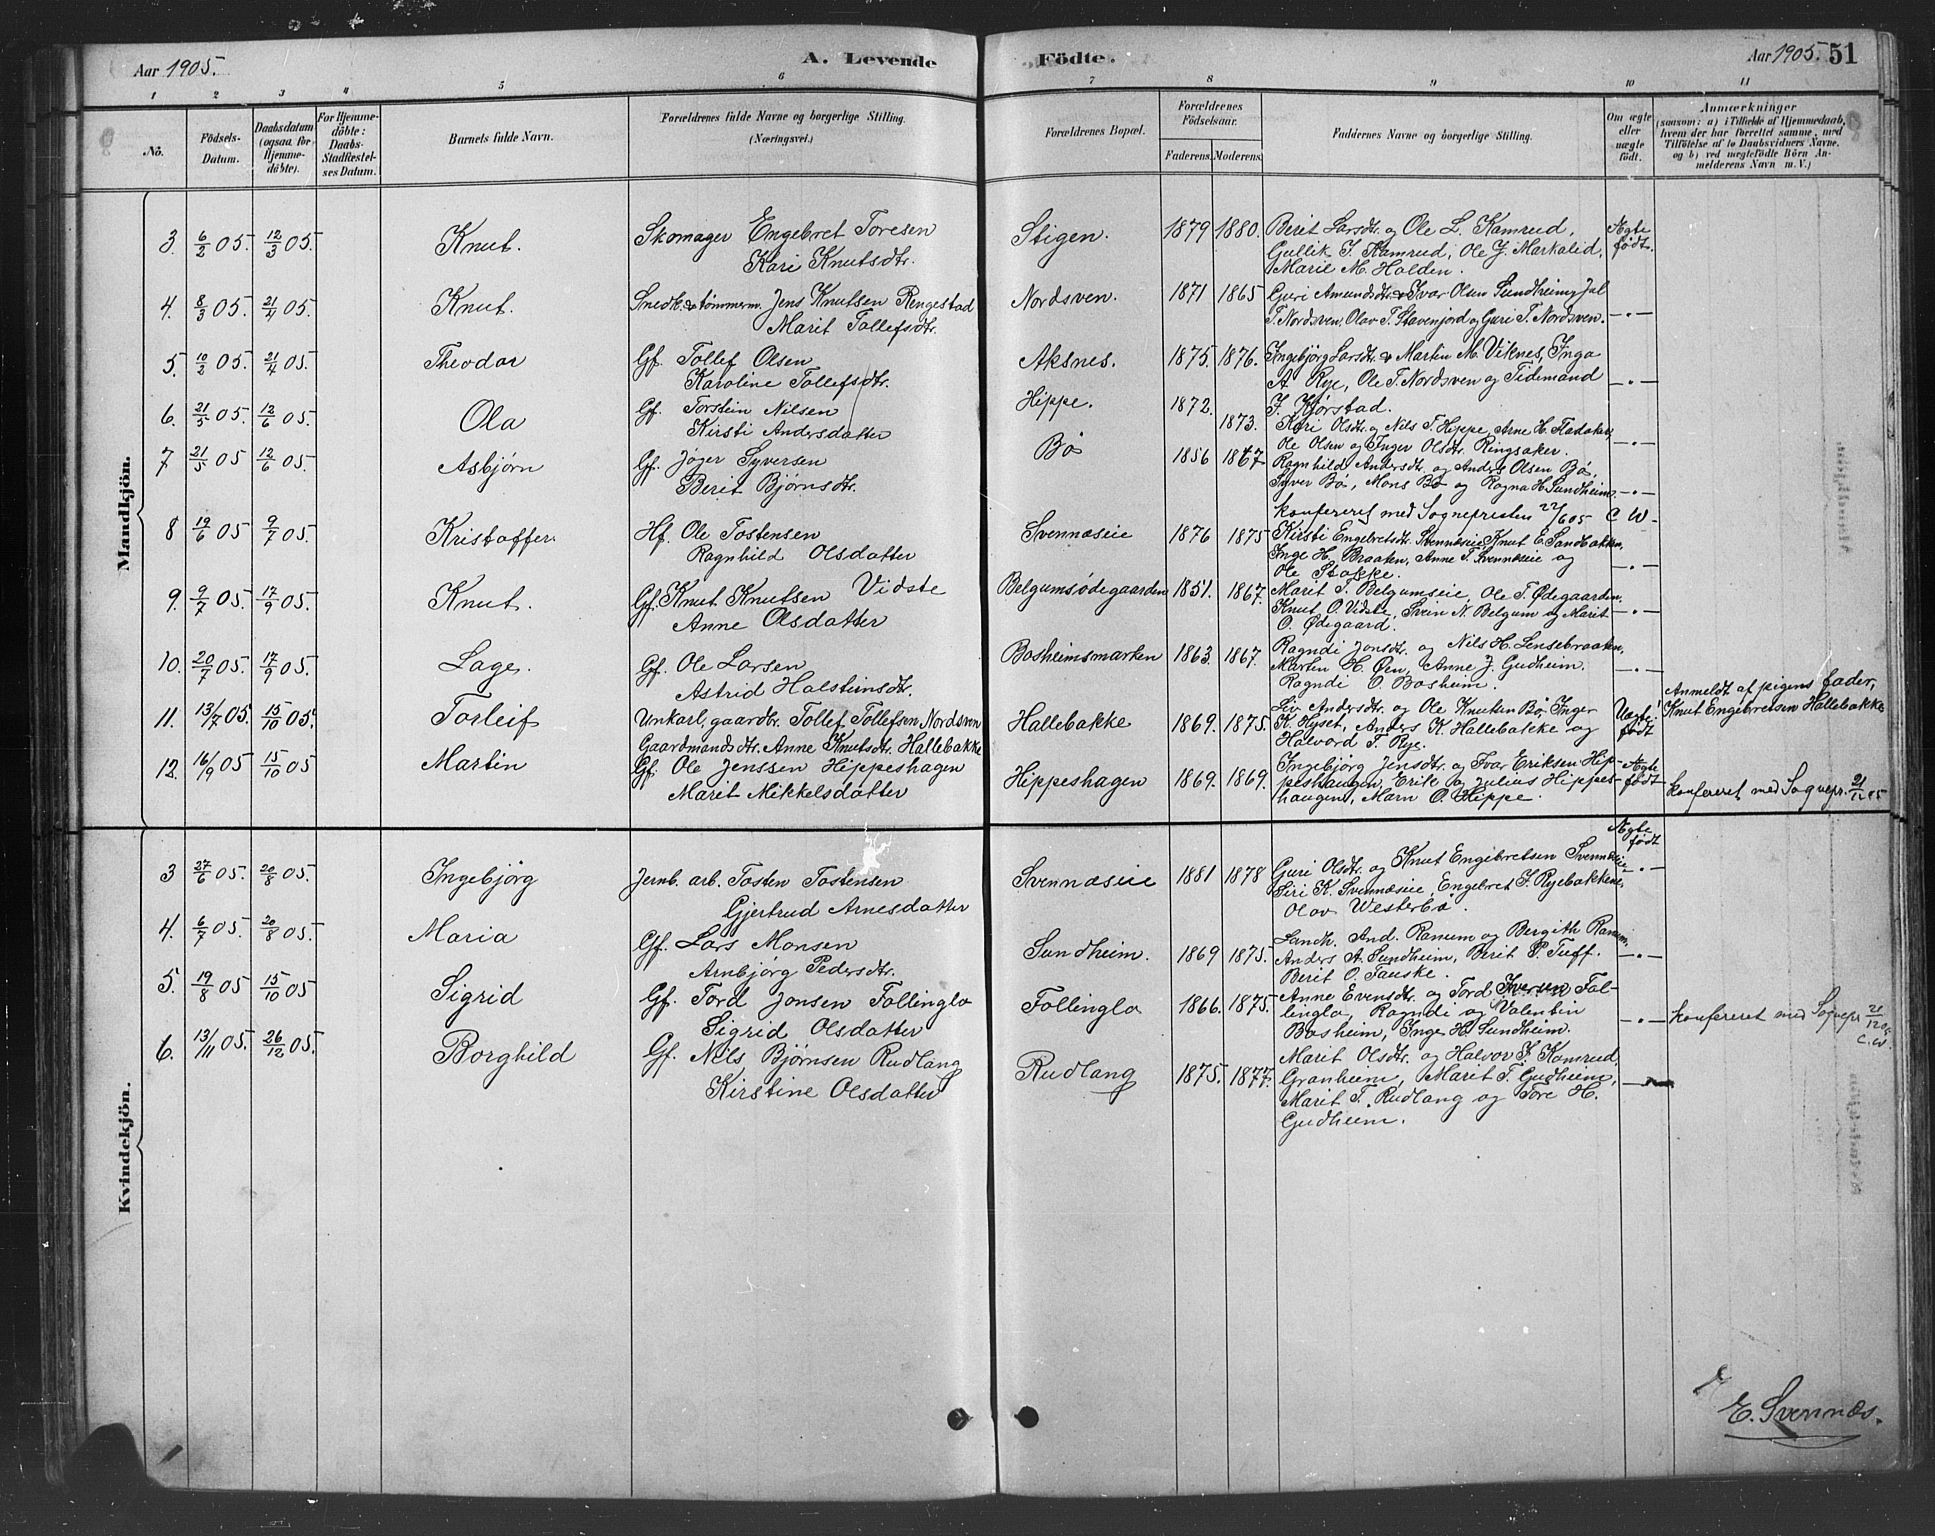 Aar 1905.
A. Levende
Födte.
Aar 1905. 51
1 2 3 4 5 6 7 8 9 10 11
No.
Födsels-
Datum.
Daabsdatum
(ogsaa for
Hjemme-
döbte).
For Hjemme-
döbte:
Daabs-
Stadfæstel-
ses Datum.
Barnets fulde Navn.
Forældrenes fulde Navne og borgerlige Stilling.
(Næringsvei.)
Forældrenes Bopæl.
Forældrenes
Födselsaar.
Faderens. Moderens.
Faddernes Navne og borgerlige Stilling.
Om ægte
eller
uægte
født.
Anmærkninger
(saasom: a) i Tilfælde af Hjemmedaab,
hvem der har forrettet samme, med
Tilföielse af to Daabsvidners Navne,
og b) ved uægtefödte Börn An-
melderens Navn m. V.)
Mandkjön.
3. 6/2 05. 12/3 05. Knut. Skomager Engebret Toresen
Kari Knutsdtr.
Stigen. 1879 1880. Berit Larsdtr. og Ole L. Kamrud,
Gullik I. Kamrud, Ole J. Markalid,
Marie M. Halden.
Ægte
født.
4. 8/3 05. 21/4 05. Knut. Snedk. & tømmerm. Jens Knutsen Rengestad
Marit Tollefsdtr.
Nordsven. 1871 1865 Guri Amundsdtr. & Ivar Olsen Sundheim, Jul
T. Nordsven, Olav T. Stavenjord og Guri T. Nordsven. -"-
5. 10/2 05. 21/4 05. Theodor Gf. Tollef Olsen
Karoline Tollefsdtr.
Aksnes. 1875. 1876. Ingebjørg Larsdtr. & Martin M. Viknes, Inga
A Rye, Ole T. Nordsven og Tidemand
I. Kjørstad. -"-
6. 21/5 05. 12/6 05. Ola Gf. Torstein Nilsen
Kirsti Andersdatter
Hippe. 1872. 1873. Kari Olsdtr. og Nils T. Hippe, Arne H. Fladaker,
Ole Olsen og Inger Olsdtr. Ringsaker. -"-
7 21/5 05 12/6 05. Asbjørn Gf. Jøger Syversen
Berit Bjørnsdtr.
Bø 1856 1867 Ragnhild Andersdtr. og Anders Olsen Bø,
Syver Bø, Mons Bø og Ragna H. Sundheim. -"-
konfereret med Sognepresten 22/6 05 C W-
8 19/6 05 9/7 05. Kristoffer. Hf. Ole Tostensen
Ragnhild Olsdatter
Svennæseie 1876 1875 Kirsti Engebretsdtr. Svennæseie, Knut E. Sandbakken,
Inge H. Braaten, Anne T. Svennæseie og
Ole Stakke. -"-
9. 9/7 05. 17/9 05. Knut. Gf. Knut Knutsen Vidste
Anne Olsdatter
Belgumsødegaarden 1851. 1867. Marit T. Belgumseie, Ole T. Ødegaarden,
Knut O. Vidste, Svein N. Belgum og Marit
O. Ødegaard. -"-
10. 20/7 05. 17/9 05. Lage. Gf. Ole Larsen
Astrid Halsteinsdtr.
Bosheimsmarken 1863. 1867. Ragndi Jonsdtr. og Nils H. Linsebraaten,
Marten H. Øen, Anne J. Gudheim.
Ragndi O. Bosheim. -"-
11. 13/7 05. 15/10 05. Torleif Unkarl, gaardbr. Tollef Tollefsen Nordsven
Gaardmandsdtr. Anne Knutsdtr. Hallebakke
Hallebakke 1869. 1875. Liv Andersdtr. og Ole Knutsen Bø, Inger
K. Hyset, Anders K. Hallebakke og
Halvord T. Rye.
Uægte
født
Anmeldt af pigens fader,
Knut Engebretsen Hallebakke
12. 16/9 05 15/10 05 Martin Gf. Ole Jenssen Hippeshagen
Marit Mikkelsdatter
Hippeshagen 1869. 1869. Ingebjørg Jensdtr. og Ivar Eriksen Hip-
peshaugen, Erik og Julius Hippes-
haugen, Marn O. Hippe.
Ægte
født
konfereret med Sognepr. 21/12 05
Kvindekjön.
3 27/6 05. 20/8 05. Ingebjørg Jernb. arb. Tosten Tostensen
Gjertrud Arnesdatter
Svennæseie 1881 1878 Guri Olsdtr. og Knut Engebretsen Svennæseie
Siri K. Svennæseie, Engebret I. Ryebakkene,
Olav Westerbø.
Ægte
født
-"-
4. 6/7 05. 20/8 05. Maria Gf. Lars Monsen
Arnbjørg Pedersdtr.
Sundheim. 1869 1875. Landh. And. Ranum og Bergith Ranum,
Anders A. Sundheim, Berit P. Tuff.
Berit O. Fauske. -"-
5. 19/8 05 15/10 05 Sigrid Gf. Tord Jonsen Follinglo
Sigrid Olsdatter
Follinglo 1866. 1875. Anne Evensdtr. og Tord Iversen Fol-
linglo, Ragndi og Valentin
Bosheim, Inge H. Sundheim. -"-
konfereret med Sognepr. 21/12 05
C. W.
6. 13/11 05. 26/12 05. Borghild Gf. Nils Bjørnsen Rudlang
Kirstine Olsdatter
Rudlang 1875. 1877. Marit Olsdtr. og Halvor I. Kamrud,
Granheim, Marit T. Gudheim,
Marit T. Rudlang og Tore H.
Gudheim.
E. Svennæs.